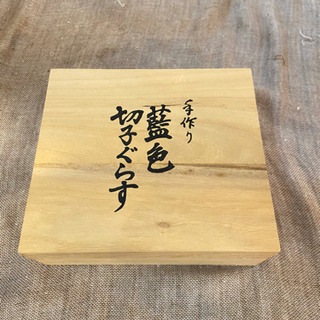 手作り
藍色
切子ぐらす